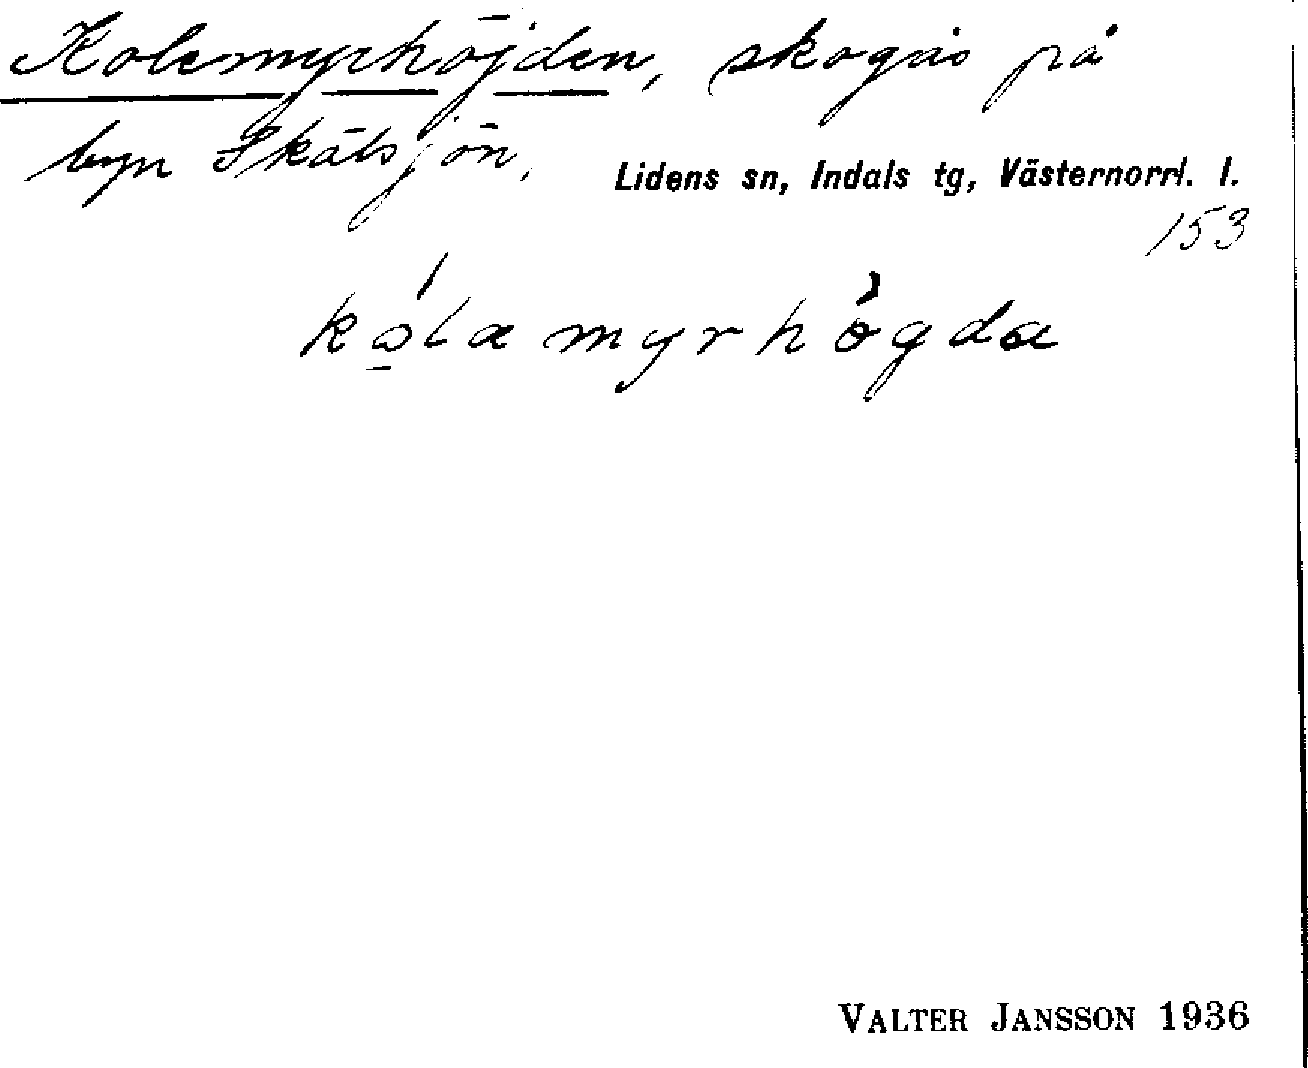 Kolemyrhöjden, skogås på
byn Skätsjön,
Lidens sn, Indals tg, Västernorrl. l.
153
kålamyrhögda
VALTER JANSSON 1936